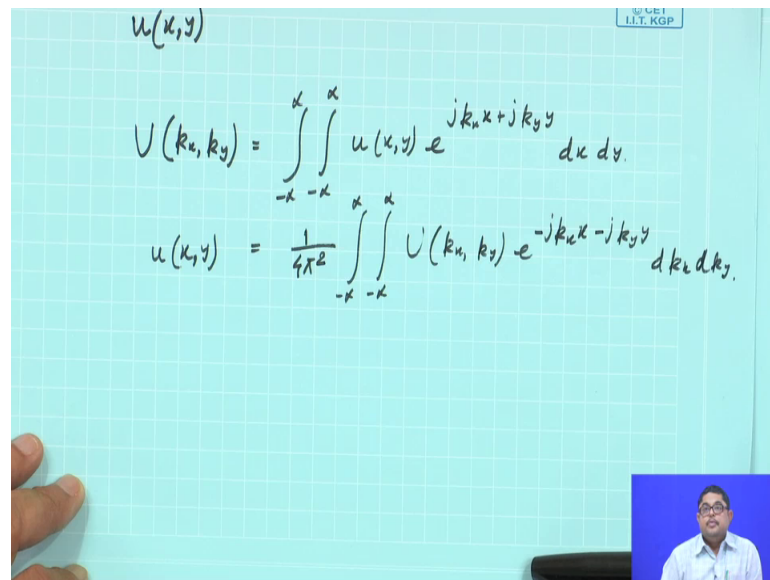 © CET
I.I.T. KGP
u(x,y)
U(kx, ky) = ∫_{-∝}^{∝} ∫_{-∝}^{∝} u(x,y) e^{jkx x + jky y} dx dy.
u(x,y) = 1/4π² ∫_{-∝}^{∝} ∫_{-∝}^{∝} U(kx, ky) e^{-jkx x - jky y} dkx dky.